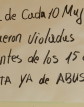 de Cada 10 Muj
ueron Violadas
ntes de los 15 a
TA YA de ABUS